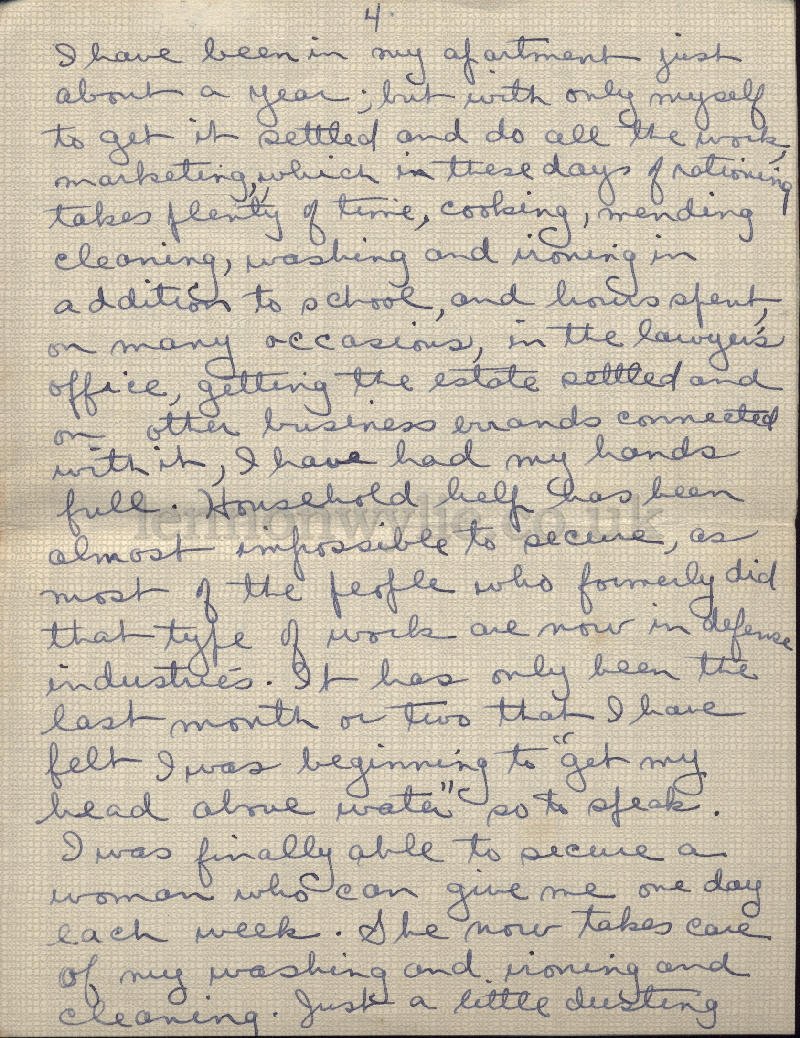 4.
I have been in my apartment just
about a year; but with only myself
to get it settled and do all the work,
marketing, which in these days of rationing
takes plenty of time, cooking, mending
cleaning, washing and ironing in
addition to school, and hours spent,
on many occasions, in the lawyer's
office, getting the estate settled and
on other business errands connected
with it, I have had my hands
full. Household help has been
lennonwylie.co.uk
almost impossible to secure, as
most of the people who formerly did
that type of work are now in defense
industries. It has only been the
last month or two that I have
felt I was beginning to "get my
head above water" so to speak.
I was finally able to secure a
woman who can give me one day
each week. She now takes care
of my washing and ironing and
cleaning. Just a little dusting